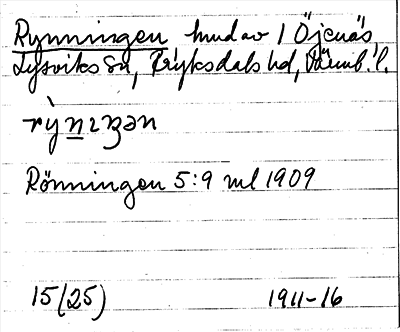 Rynningen hmd av 1 Öjenäs
Lysviks sn, Fryksdals hd, Värmb. l.
Rönningen 5:9 ml 1909
15(25) 1911-16